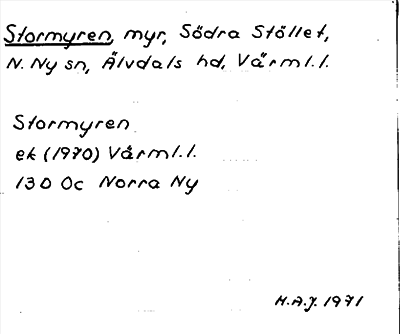 Stormyren, myr, Södra Stöllet,
N. Ny sn, Älvdals hd, Värml.l.
Stormyren
ek (1970) Värml.l.
13D 0c Norra Ny
H.A.J. 1971